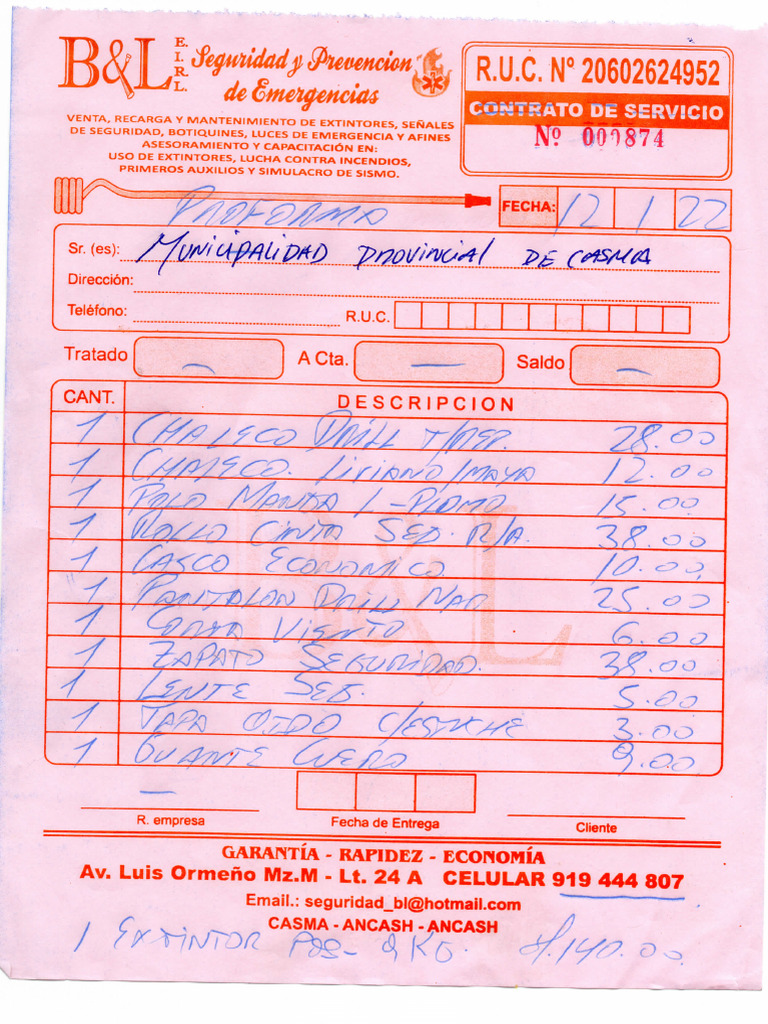 B&L E.I.R.L. Seguridad y Prevencion
de Emergencias
VENTA, RECARGA Y MANTENIMIENTO DE EXTINTORES, SEÑALES
DE SEGURIDAD, BOTIQUINES, LUCES DE EMERGENCIA Y AFINES
ASESORAMIENTO Y CAPACITACIÓN EN:
USO DE EXTINTORES, LUCHA CONTRA INCENDIOS,
PRIMEROS AUXILIOS Y SIMULACRO DE SISMO.
R.U.C. Nº 20602624952
CONTRATO DE SERVICIO
Nº 000874
PROFORMA
FECHA: 12 1 22
Sr. (es): MUNICIPALIDAD PROVINCIAL DE CASMA
Dirección:
Teléfono: R.U.C.
Tratado — A Cta. — Saldo —
CANT. DESCRIPCION
1 CHALECO DRILL 28.00
1 CHALECO. LIVIANO/MAYA 12.00
1 POLO MANGA L-PLOMO 15.00
1 ROLLO CINTA SEG. R/A. 38.00
1 CASCO ECONOMICO. 10.00
1 PANTALON DRILL NAR 25.00
1 CORTA VIENTO 6.00
1 ZAPATO SEGURIDAD. 39.00
1 LENTE SEG. 5.00
1 TAPA OIDO C/ESTUCHE 3.00
1 GUANTE CUERO 9.00
—
R. empresa Fecha de Entrega Cliente
GARANTÍA - RAPIDEZ - ECONOMÍA
Av. Luis Ormeño Mz.M - Lt. 24 A CELULAR 919 444 807
Email.: seguridad_bl@hotmail.com
CASMA - ANCASH - ANCASH
1 EXTINTOR PQS- 9KG. S/.140.00
B&L